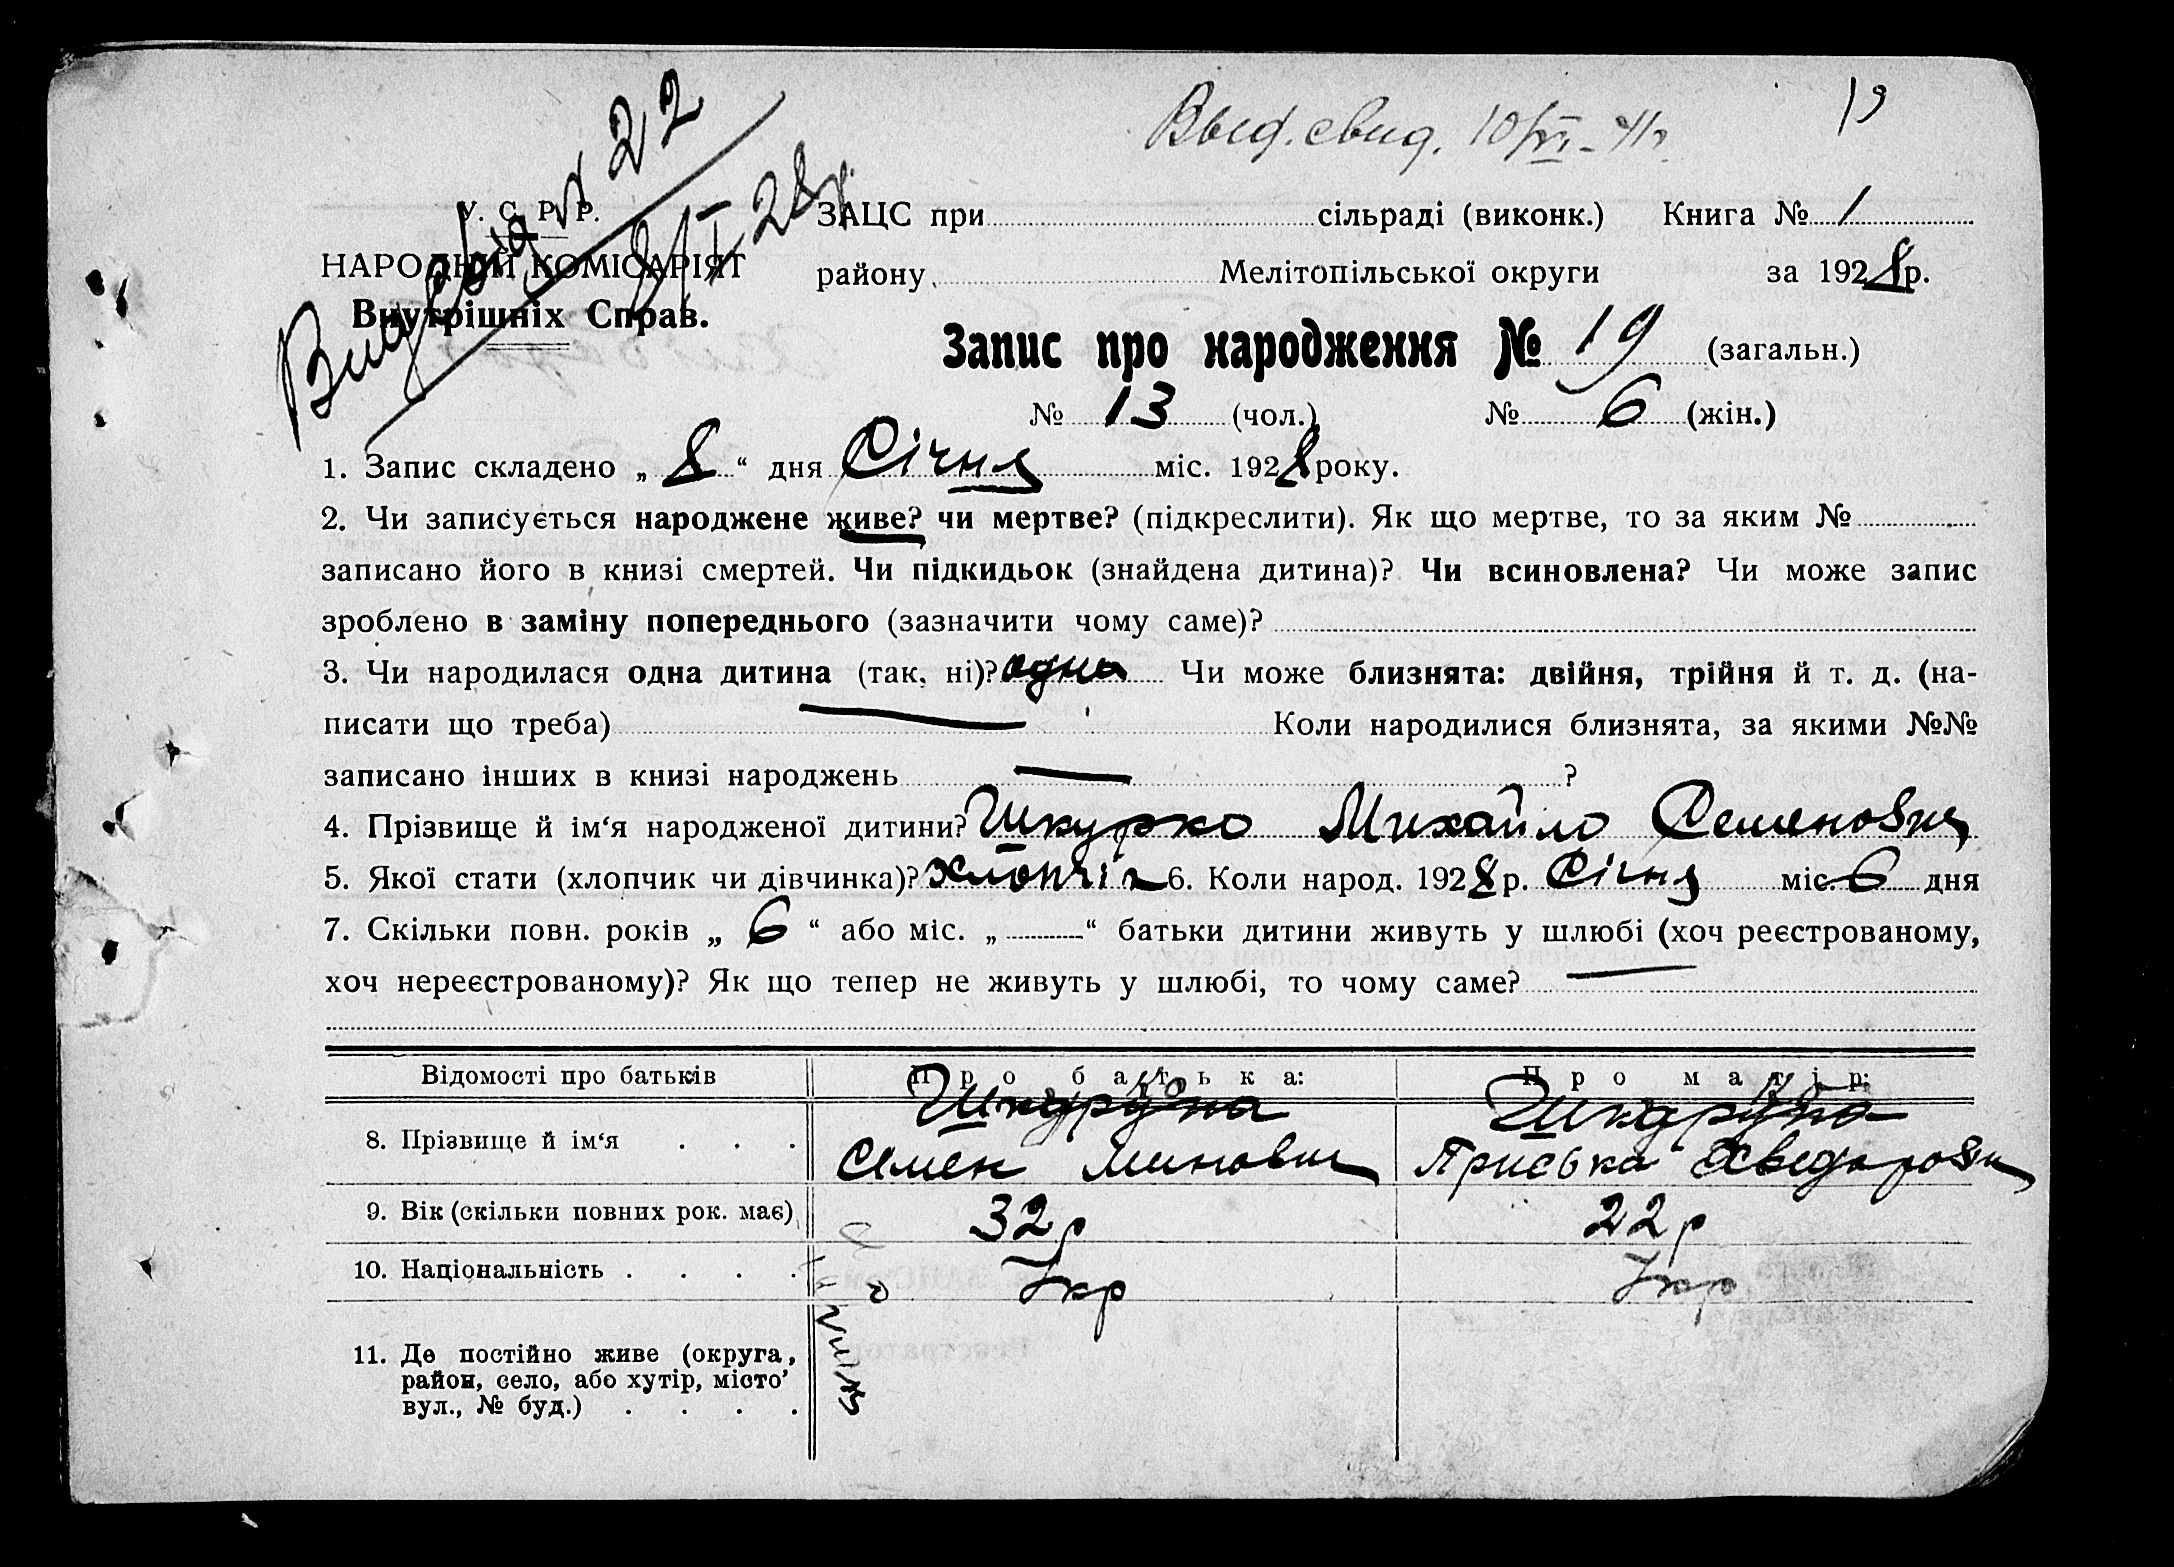 Выд. свид. 10/VI-41г. 19
Вид. свід. № 22
8/I 28 р.
У. С. Р. Р.
НАРОДНИЙ КОМІСАРІЯТ
Внутрішніх Справ.
ЗАЦС при сільраді (виконк.) Книга № 1
району Мелітопільської округи за 1928 р.
Запис про народження № 19 (загальн.)
№ 13 (чол.) № 6 (жін.)
1. Запис складено „ 8 “ дня Січня міс. 1928 року.
2. Чи записується народжене живе? чи мертве? (підкреслити). Як що мертве, то за яким №
записано його в книзі смертей. Чи підкидьок (знайдена дитина)? Чи всиновлена? Чи може запис
зроблено в заміну попереднього (зазначити чому саме)?
3. Чи народилася одна дитина (так, ні)? одна Чи може близнята: двійня, трійня й т. д. (на-
писати що треба) — Коли народилися близнята, за якими №№
записано інших в книзі народжень — ?
4. Прізвище й ім‘я народженої дитини? Шкурко Михайло Семенович
5. Якої стати (хлопчик чи дівчинка)? хлопчік 6. Коли народ. 1928 р. Січня міс. 6 дня
7. Скільки повн. років „ 6 “ або міс. „ “ батьки дитини живуть у шлюбі (хоч реєстрованому,
хоч нереєстрованому)? Як що тепер не живуть у шлюбі, то чому саме? —
Відомості про батьків Про батька: Про матір:
8. Прізвище й ім‘я . . . Семен Минович Приська Хведоровн
9. Вік (скільки повних рок. має) 32 р 22 р
10. Національність . . . . Укр Укр
11. Де постійно живе (округа,
район, село, або хутір, місто’
вул., № буд.) . . . .